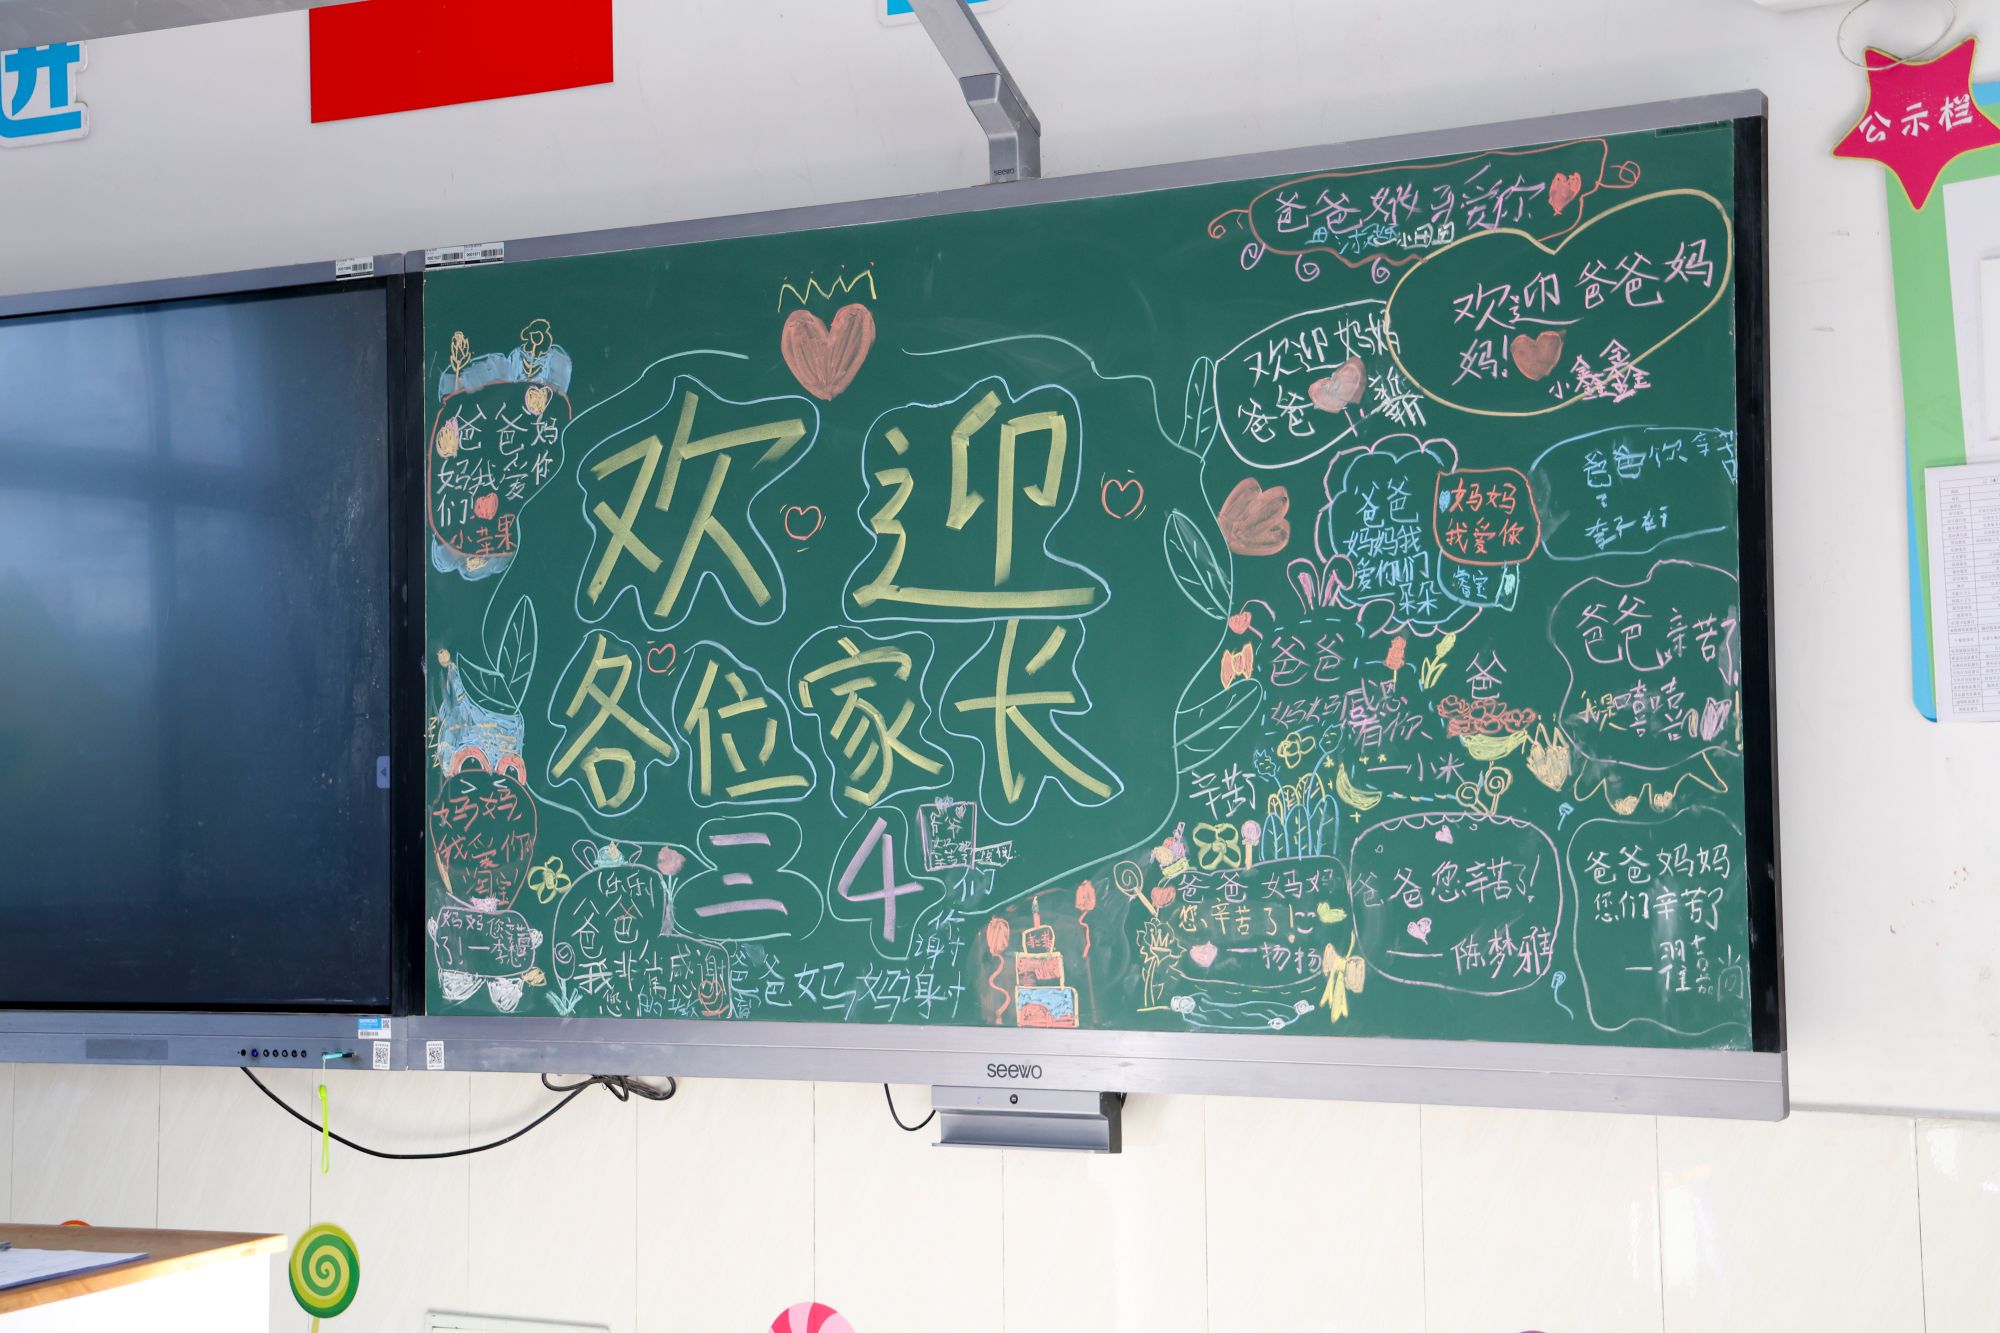 进
公示栏
seewo
欢迎
各位家长
三4
爸爸妈
妈我爱你
们!
小苹果
妈妈
我爱你
淘宝
妈妈您辛苦
了!一李
乐乐
爸爸
我非常感谢
您
爸爸妈妈谢谢
你们
爸爸妈妈爱你
小田田
欢迎爸爸妈
妈!
小鑫鑫
欢迎妈妈
爸爸
爸爸
妈妈我
爱你们
一朵朵
妈妈
我爱你
睿宝
爸爸你辛苦
了
爸爸
妈妈感恩
有你
一小米
爸
辛苦了
爸爸辛苦了
我是嘻嘻
爸爸妈妈
您辛苦了!
一扬扬
爸爸您辛苦了!
一陈梦雅
爸爸妈妈
您们辛苦了
seewo